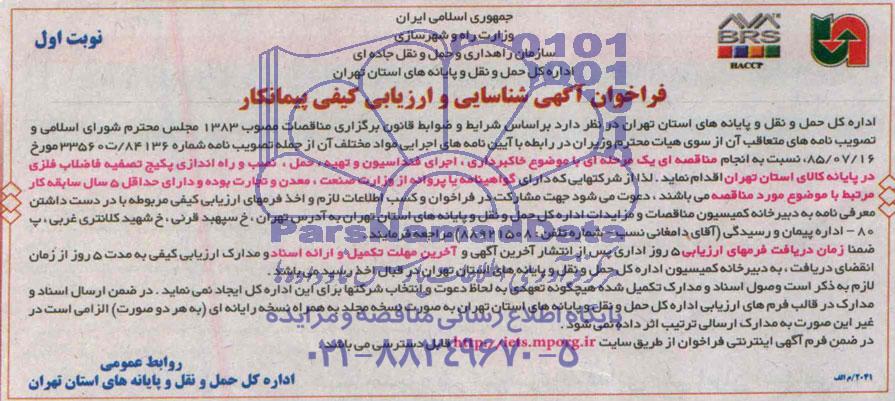 جمهوری اسلامی ایران
وزارت راه و شهرسازی
سازمان راهداری و حمل و نقل جاده ای
اداره کل حمل و نقل و پایانه های استان تهران
نوبت اول
AVA
BRS
HACCP
فراخوان آگهی شناسایی و ارزیابی کیفی پیمانکار
اداره کل حمل و نقل و پایانه های استان تهران در نظر دارد براساس شرایط و ضوابط قانون برگزاری مناقصات مصوب ۱۳۸۳ مجلس محترم شورای اسلامی و
تصویب نامه های متعاقب آن از سوی هیات محترم وزیران در رابطه با آیین نامه های اجرایی مواد مختلف آن از جمله تصویب نامه شماره ۸۴۱۳۶/ت۳۳۵۶۰ مورخ
۸۵/۰۷/۱۶، نسبت به انجام مناقصه ای یک مرحله ای با موضوع خاکبرداری، اجرای فنداسیون و تهیه، حمل، نصب و راه اندازی پکیج تصفیه فاضلاب فلزی
در پایانه کالای استان تهران اقدام نماید. لذا از شرکتهایی که دارای گواهینامه یا پروانه از وزارت صنعت، معدن و تجارت بوده و دارای حداقل ۵ سال سابقه کار
مرتبط با موضوع مورد مناقصه می باشند، دعوت می شود جهت مشارکت در فراخوان و کسب اطلاعات لازم و اخذ فرمهای ارزیابی کیفی مربوطه با در دست داشتن
معرفی نامه به دبیرخانه کمیسیون مناقصات و مزایدات اداره کل حمل و نقل و پایانه های استان تهران به آدرس تهران، خ سپهبد قرنی، خ شهید کلانتری غربی، پ
۸۰ - اداره پیمان و رسیدگی (آقای دامغانی نسب - شماره تلفن: ۸۸۹۲۱۵۰۸) مراجعه فرمایند.
ضمنا زمان دریافت فرمهای ارزیابی ۵ روز اداری پس از انتشار آخرین آگهی و آخرین مهلت تکمیل و ارائه اسناد و مدارک ارزیابی کیفی به مدت ۵ روز از زمان
انقضای دریافت، به دبیرخانه کمیسیون اداره کل حمل و نقل و پایانه های استان تهران در قبال اخذ رسید می باشد.
لازم به ذکر است وصول اسناد و مدارک تکمیل شده هیچگونه تعهدی به لحاظ دعوت و انتخاب شرکتها برای این اداره کل ایجاد نمی نماید. در ضمن ارسال اسناد و
مدارک در قالب فرم های ارزیابی اداره کل حمل و نقل و پایانه های استان تهران به صورت نسخه مجلد به همراه نسخه رایانه ای (به هر دو صورت) الزامی است در
غیر این صورت به مدارک ارسالی ترتیب اثر داده نمی شود.
در ضمن فرم آگهی اینترنتی فراخوان از طریق سایت http://iets.mporg.ir قابل دسترسی می باشد.
روابط عمومی
اداره کل حمل و نقل و پایانه های استان تهران
۲۰۴۱/م الف
ParsNamadData
پایگاه اطلاع رسانی مناقصه و مزایده
۰۲۱-۸۸۳۴۹۶۷۰-۵